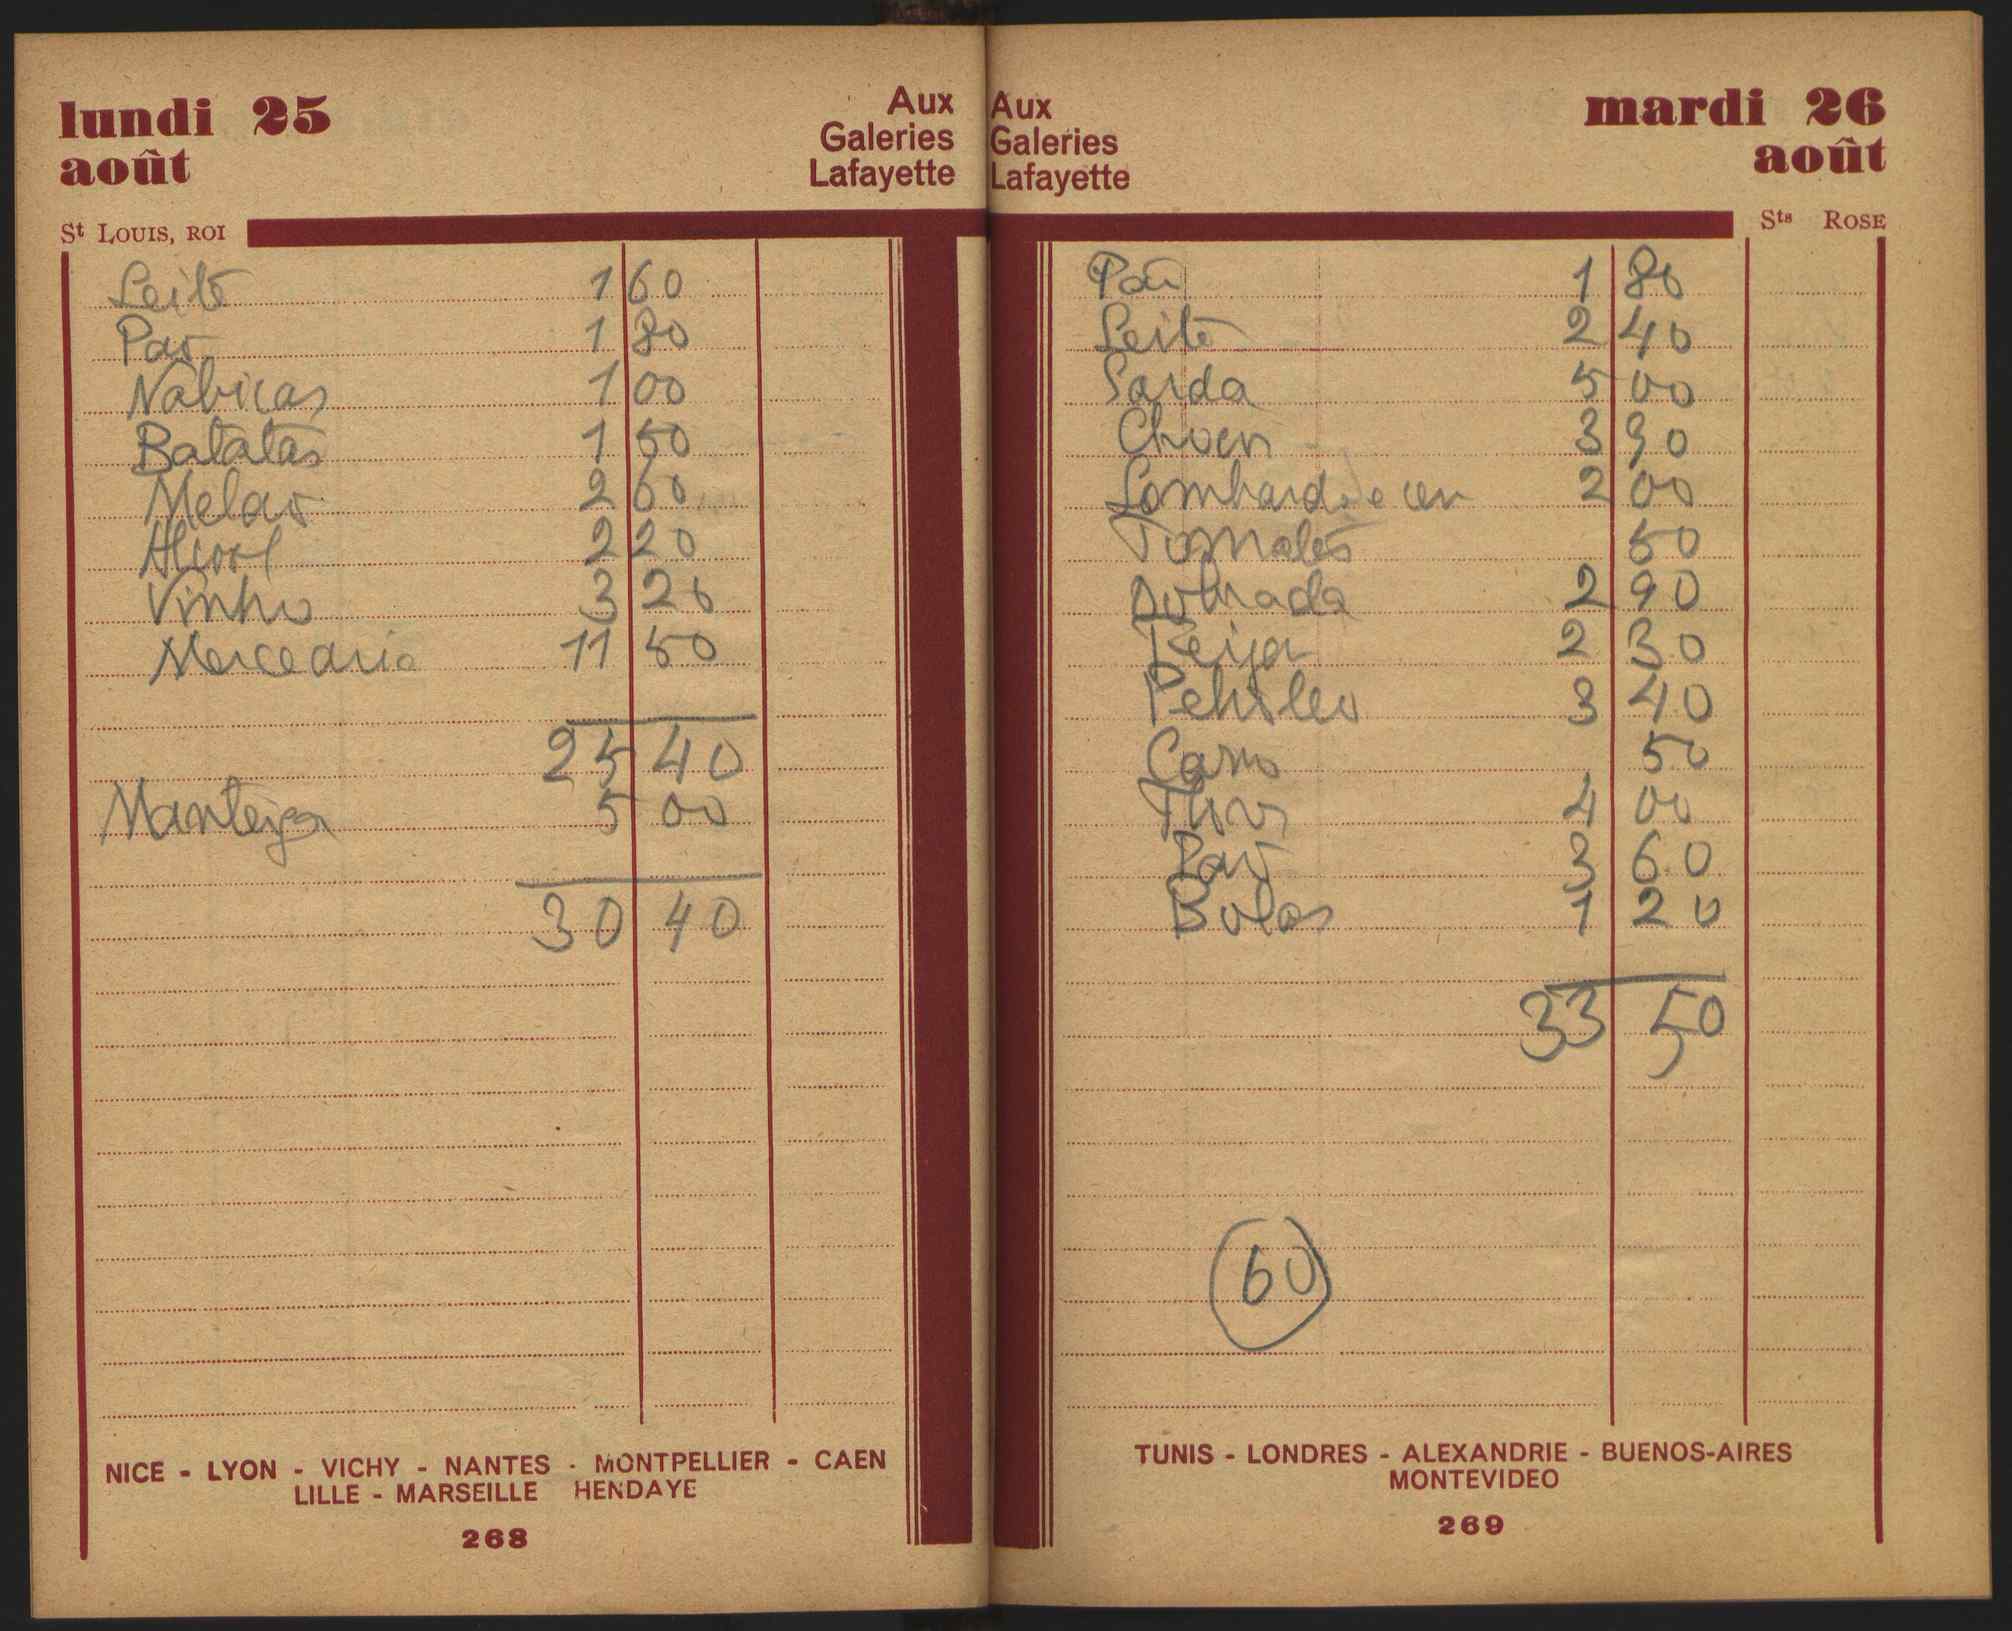 lundi 25
août
Aux
Galeries
Lafayette
St LOUIS, ROI
Leite 1 60
Pão 1 80
Nabiças 1 00
Batatas 1 50
Melao 2 60
Alcool 2 20
Vinho 3 20
Mercearia 11 50
25 40
Manteiga 5 00
30 40
NICE - LYON - VICHY - NANTES - MONTPELLIER - CAEN
LILLE - MARSEILLE HENDAYE
268
Aux
Galeries
Lafayette
mardi 26
août
Sts ROSE
Pão 1 80
Leite 2 40
Sarda 5 00
Choen 3 90
Lombarda e cen 2 00
Tomates 50
Dobrada 2 90
2 30
Petroleo 3 40
Carro 50
4 00
Pão 3 60
Bolos 1 20
33 50
60
TUNIS - LONDRES - ALEXANDRIE - BUENOS-AIRES
MONTEVIDEO
269